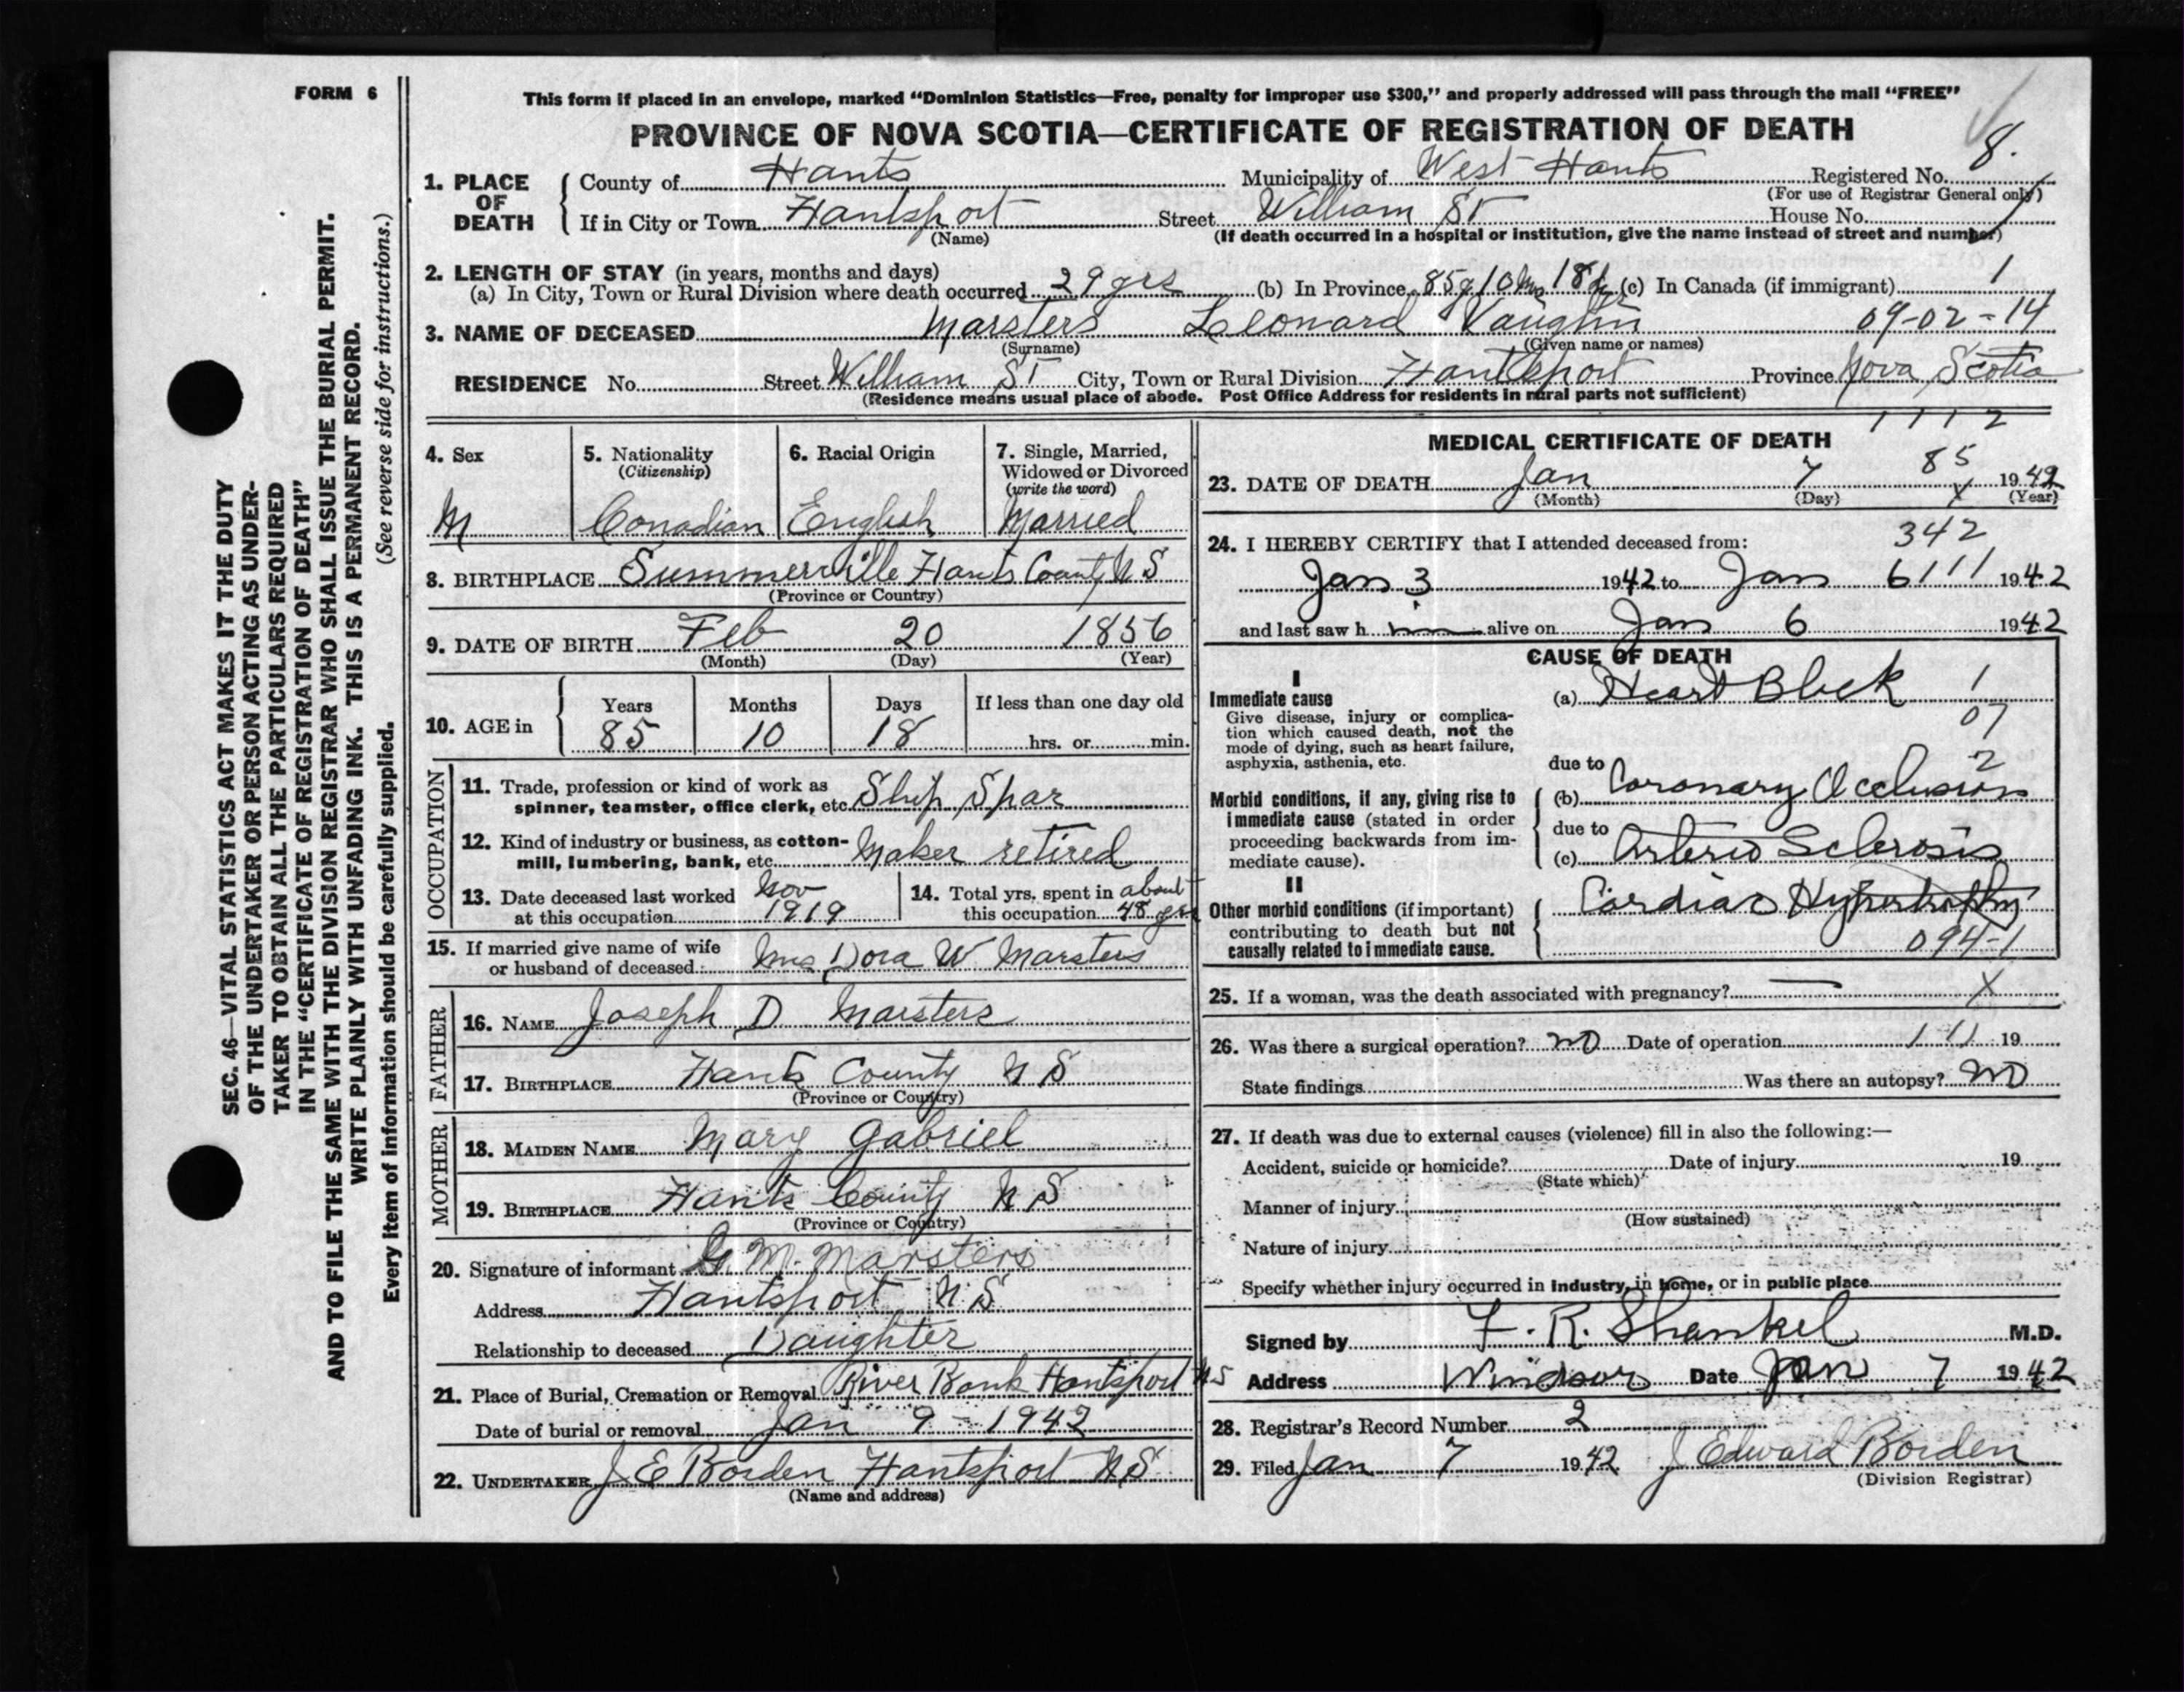 FORM 6
SEC. 46—VITAL STATISTICS ACT MAKES IT THE DUTY
OF THE UNDERTAKER OR PERSON ACTING AS UNDER-
TAKER TO OBTAIN ALL THE PARTICULARS REQUIRED
IN THE "CERTIFICATE OF REGISTRATION OF DEATH"
AND TO FILE THE SAME WITH THE DIVISION REGISTRAR WHO SHALL ISSUE THE BURIAL PERMIT.
WRITE PLAINLY WITH UNFADING INK. THIS IS A PERMANENT RECORD.
Every item of information should be carefully supplied. (See reverse side for instructions.)
This form if placed in an envelope, marked "Dominion Statistics—Free, penalty for improper use $300," and properly addressed will pass through the mail "FREE"
PROVINCE OF NOVA SCOTIA—CERTIFICATE OF REGISTRATION OF DEATH
8.
1. PLACE OF DEATH
County of Hants Municipality of West Hants Registered No.
(For use of Registrar General only)
If in City or Town Hantsport Street William St House No.
(Name) (If death occurred in a hospital or institution, give the name instead of street and number)
2. LENGTH OF STAY (in years, months and days)
(a) In City, Town or Rural Division where death occurred 29 yrs (b) In Province 85 y 10 m 18 dy (c) In Canada (if immigrant) 1
3. NAME OF DECEASED Marsters Leonard Vaughn 09-02-14
(Surname) (Given name or names)
RESIDENCE No. Street William ST City, Town or Rural Division Hantsport Province Nova Scotia
(Residence means usual place of abode. Post Office Address for residents in rural parts not sufficient)
4. Sex M
5. Nationality (Citizenship) Canadian
6. Racial Origin English
7. Single, Married, Widowed or Divorced (write the word) Married
8. BIRTHPLACE Summerville Hants County N S
(Province or Country)
9. DATE OF BIRTH Feb 20 1856
(Month) (Day) (Year)
10. AGE in Years 85 Months 10 Days 18 If less than one day old
hrs. or min.
OCCUPATION
11. Trade, profession or kind of work as
spinner, teamster, office clerk, etc. Ship Spar
12. Kind of industry or business, as cotton-
mill, lumbering, bank, etc. Maker retired
13. Date deceased last worked at this occupation Nov 1919
14. Total yrs. spent in this occupation about 48 yrs
15. If married give name of wife
or husband of deceased Mrs Dora W Marsters
FATHER
16. NAME Joseph D Marsters
17. BIRTHPLACE Hants County N S
(Province or Country)
MOTHER
18. MAIDEN NAME Mary Gabriel
19. BIRTHPLACE Hants County N S
(Province or Country)
20. Signature of informant G. M. Marsters
Address Hantsport N.S.
Relationship to deceased Daughter
21. Place of Burial, Cremation or Removal River Bank Hantsport N S
Date of burial or removal Jan 9 - 1942
22. UNDERTAKER J E Borden Hantsport N.S.
(Name and address)
1 1 1 2
MEDICAL CERTIFICATE OF DEATH
85
23. DATE OF DEATH Jan 7 1942
(Month) (Day) (Year)
X
342
24. I HEREBY CERTIFY that I attended deceased from:
Jan 3 1942 to Jan 6 111 1942
and last saw h im alive on Jan 6 1942
CAUSE OF DEATH
I
Immediate cause
Give disease, injury or complica-
tion which caused death, not the
mode of dying, such as heart failure,
asphyxia, asthenia, etc.
(a) Heart Block 1
07
2
due to
Morbid conditions, if any, giving rise to
immediate cause (stated in order
proceeding backwards from im-
mediate cause).
(b) Coronary Occlusion
due to
(c) Arterio Sclerosis
II
Other morbid conditions (if important)
contributing to death but not
causally related to immediate cause.
Cardiac Hypertrophy
094-1
25. If a woman, was the death associated with pregnancy? — X
26. Was there a surgical operation? no Date of operation 1 11 19
State findings Was there an autopsy? no
27. If death was due to external causes (violence) fill in also the following:—
Accident, suicide or homicide? Date of injury 19
(State which)
Manner of injury
(How sustained)
Nature of injury
Specify whether injury occurred in Industry, in home, or in public place
Signed by F. R. Shankel M.D.
Address Windsor Date Jan 7 1942
28. Registrar's Record Number 2
29. Filed Jan 7 1942 J Edward Borden
(Division Registrar)